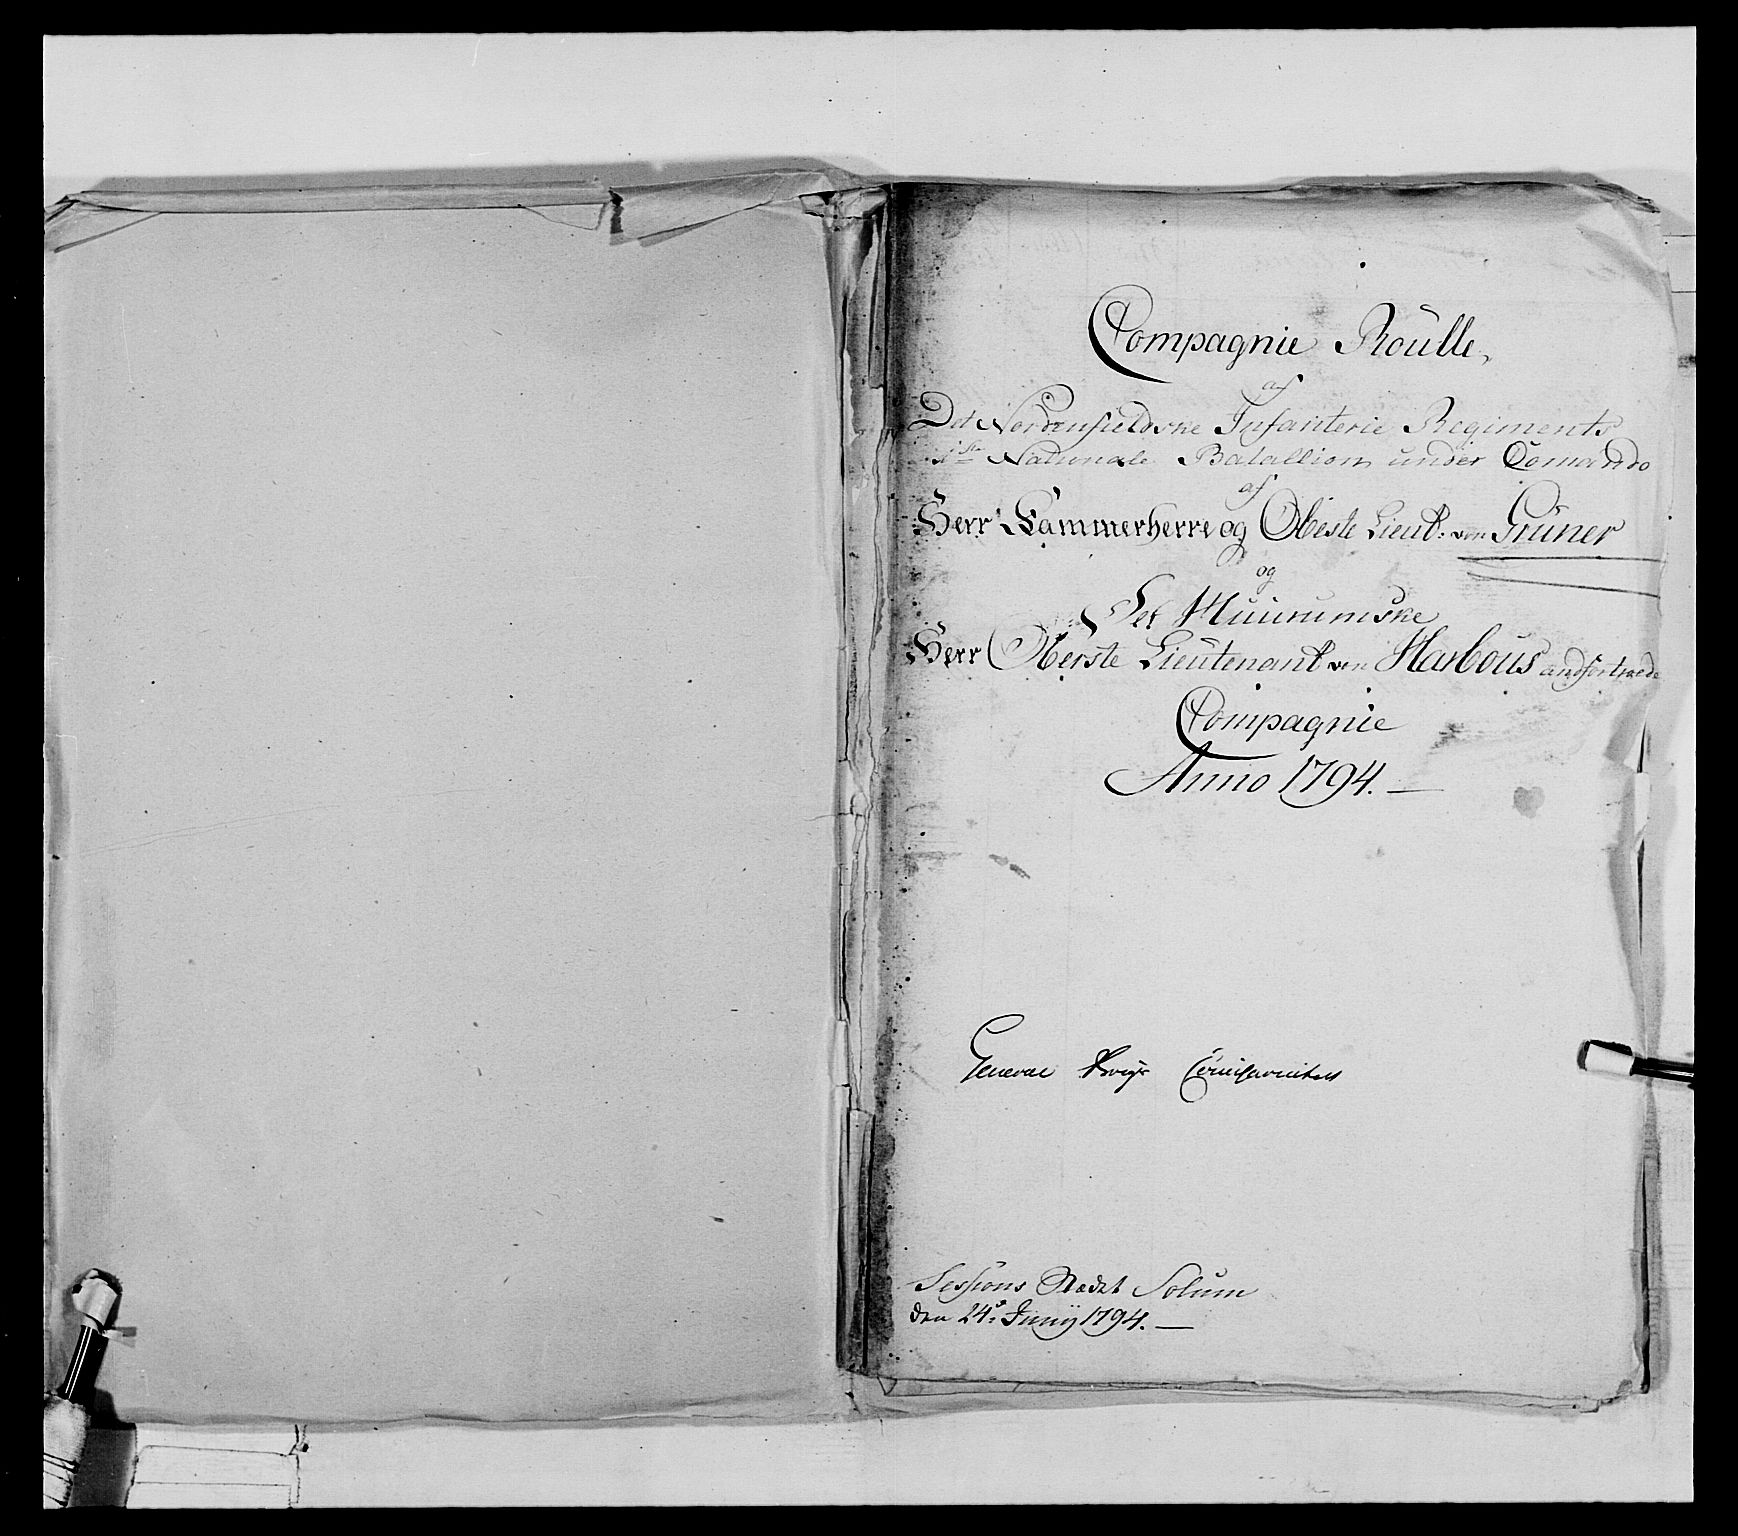 Compagnie Roülle,
af
Det Nordenfieldske Infanterie Regiments
1ste Nationale Batallion under Comando
af
Herr Kammerherre og Obeste Lieut: von Grüner
og
Det
Herr Oberste Lieutenant von Harboüs andfortroede
Compagnie
Anno 1794. —
General Krigs Comissariatett
Sessions Stædet Solum
den 24de Junij 1794. —